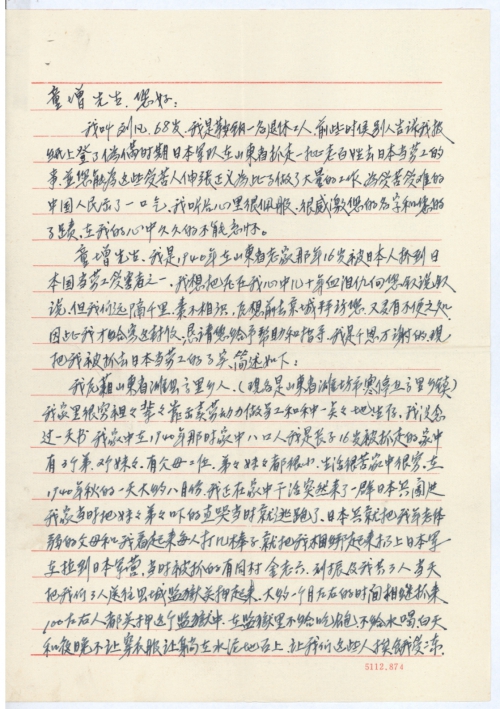 童增先生:您好:
我叫刘凡,68岁,我是鞍钢一名退休工人,前些时侯别人告诉我报
纸上登了伪满时期日本军队在山东省抓走一批老百姓去日本当劳工的
事,並您能为这些受苦人伸张正义为此了做了大量的工作,为受苦受难的
中国人民示了一口气,我听后心里很佩服,很感激您的名字和您的
了迹,在我的心中久久的不能忘怀。
童增先生,我是1940年在山东老家那年16岁被日本人抓到日
本国当劳工受害者之一,我想把在我心中几十年血泪仇向您取说取
说,但我们远隔千里,素不相识,想前去京城拜访您,又有不便之处
因此我才给您写这封信,恳请您给予帮助和指导,我是千恩万谢的,现
把我被抓去日本当劳工的了实,简述如下:
我老籍山东省潍县言里乡人,
我家里很穷祖々辈々靠出卖劳动力做工和种一些々地生存,我没念
过一天书,我家中在1940年那时家中八口人我是长子16岁被抓走的家中
有3个弟,2个妹々,有父母二位,弟々妹々都很小,生活很苦家中很穷,在
1940年秋的一天大约八月份,我正在家中干活突然来了一群日本兵闯进
我家当时把妹々弟々吓的直哭当时就逃跑了,日本兵就把我年老体
弱的父母和我看起来每人打几棒子就把我捆绑起来拉上日本军
车拉到日本军营,当时被抓的有同村金老六,刘振及我共3人,当天
把我们3人送往县城监狱关押起来,大约一个月左右的时间相继抓来
100左右人都关押这个监狱中,在监狱里不给吃饱不给水喝,白天
和夜晚不让穿衣服让躺在水泥地面上,让我们这些人挨饿受凉,
5112.874